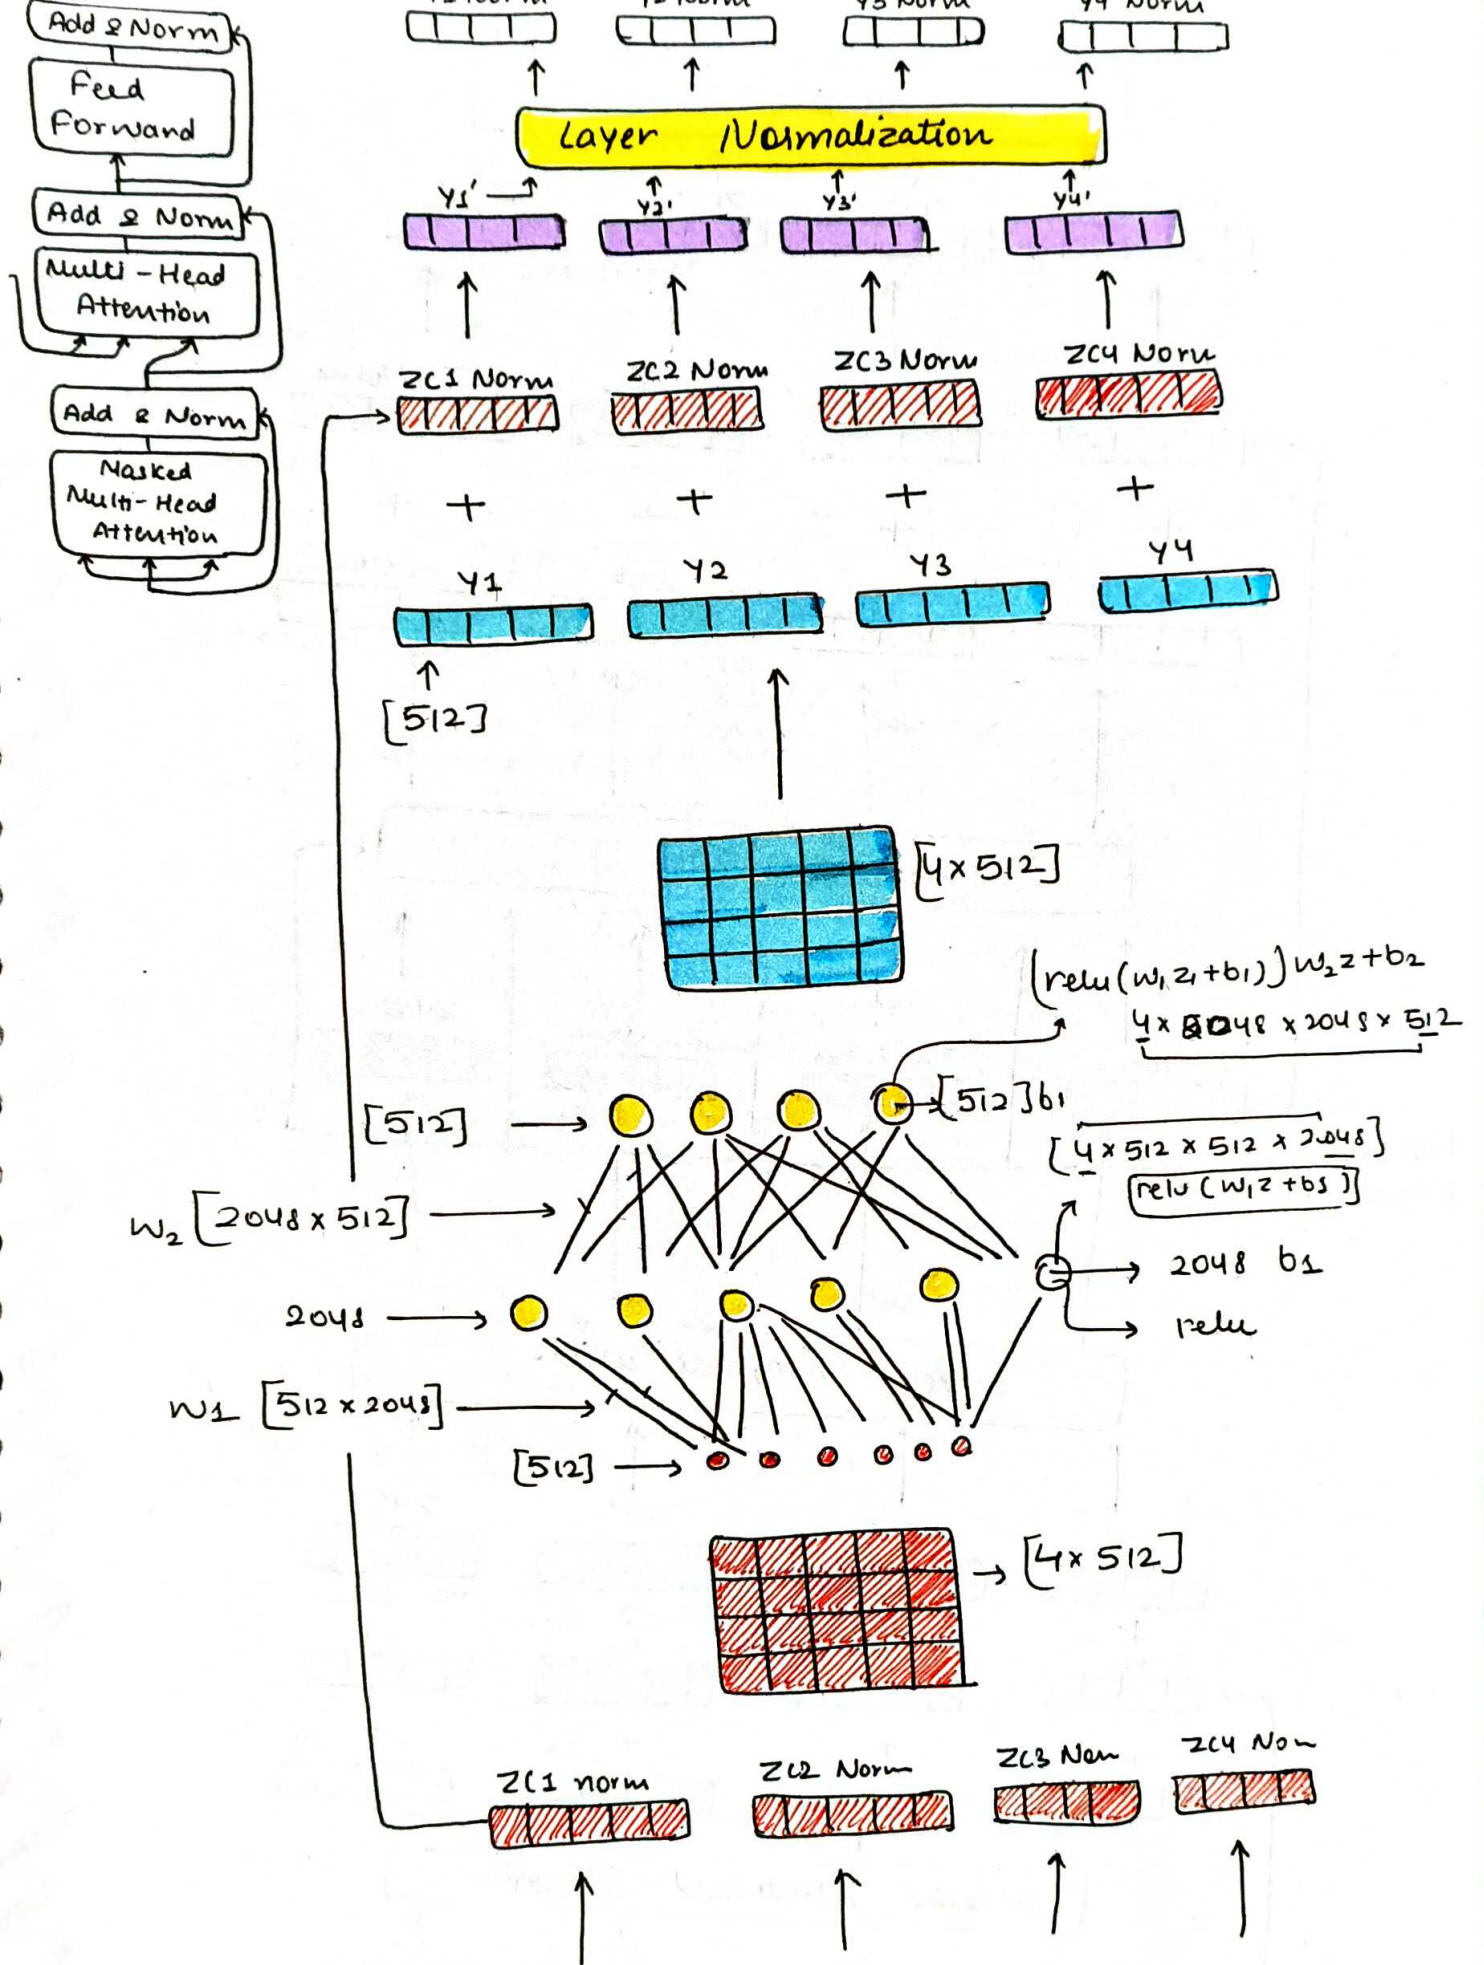 Add & Norm
Feed
Forward
Add & Norm
Multi-Head
Attention
Add & Norm
Masked
Multi-Head
Attention
Y3 Norm
Y4 Norm
Layer Normalization
Y1'
Y2'
Y3'
Y4'
ZC1 Norm
ZC2 Norm
ZC3 Norm
ZC4 Norm
+
+
+
+
Y1
Y2
Y3
Y4
[512]
[4 x 512]
(relu(W1 Z1+b1)) W2 Z+b2
4 x 2048 x 2048 x 512
[512]
[512] b1
[4 x 512 x 512 x 2048]
[relu (W1 Z + b1)]
W2 [2048 x 512]
2048 b1
2048
relu
W1 [512 x 2048]
[512]
[4 x 512]
ZC1 norm
ZC2 Norm
ZC3 Nom
ZC4 Nom